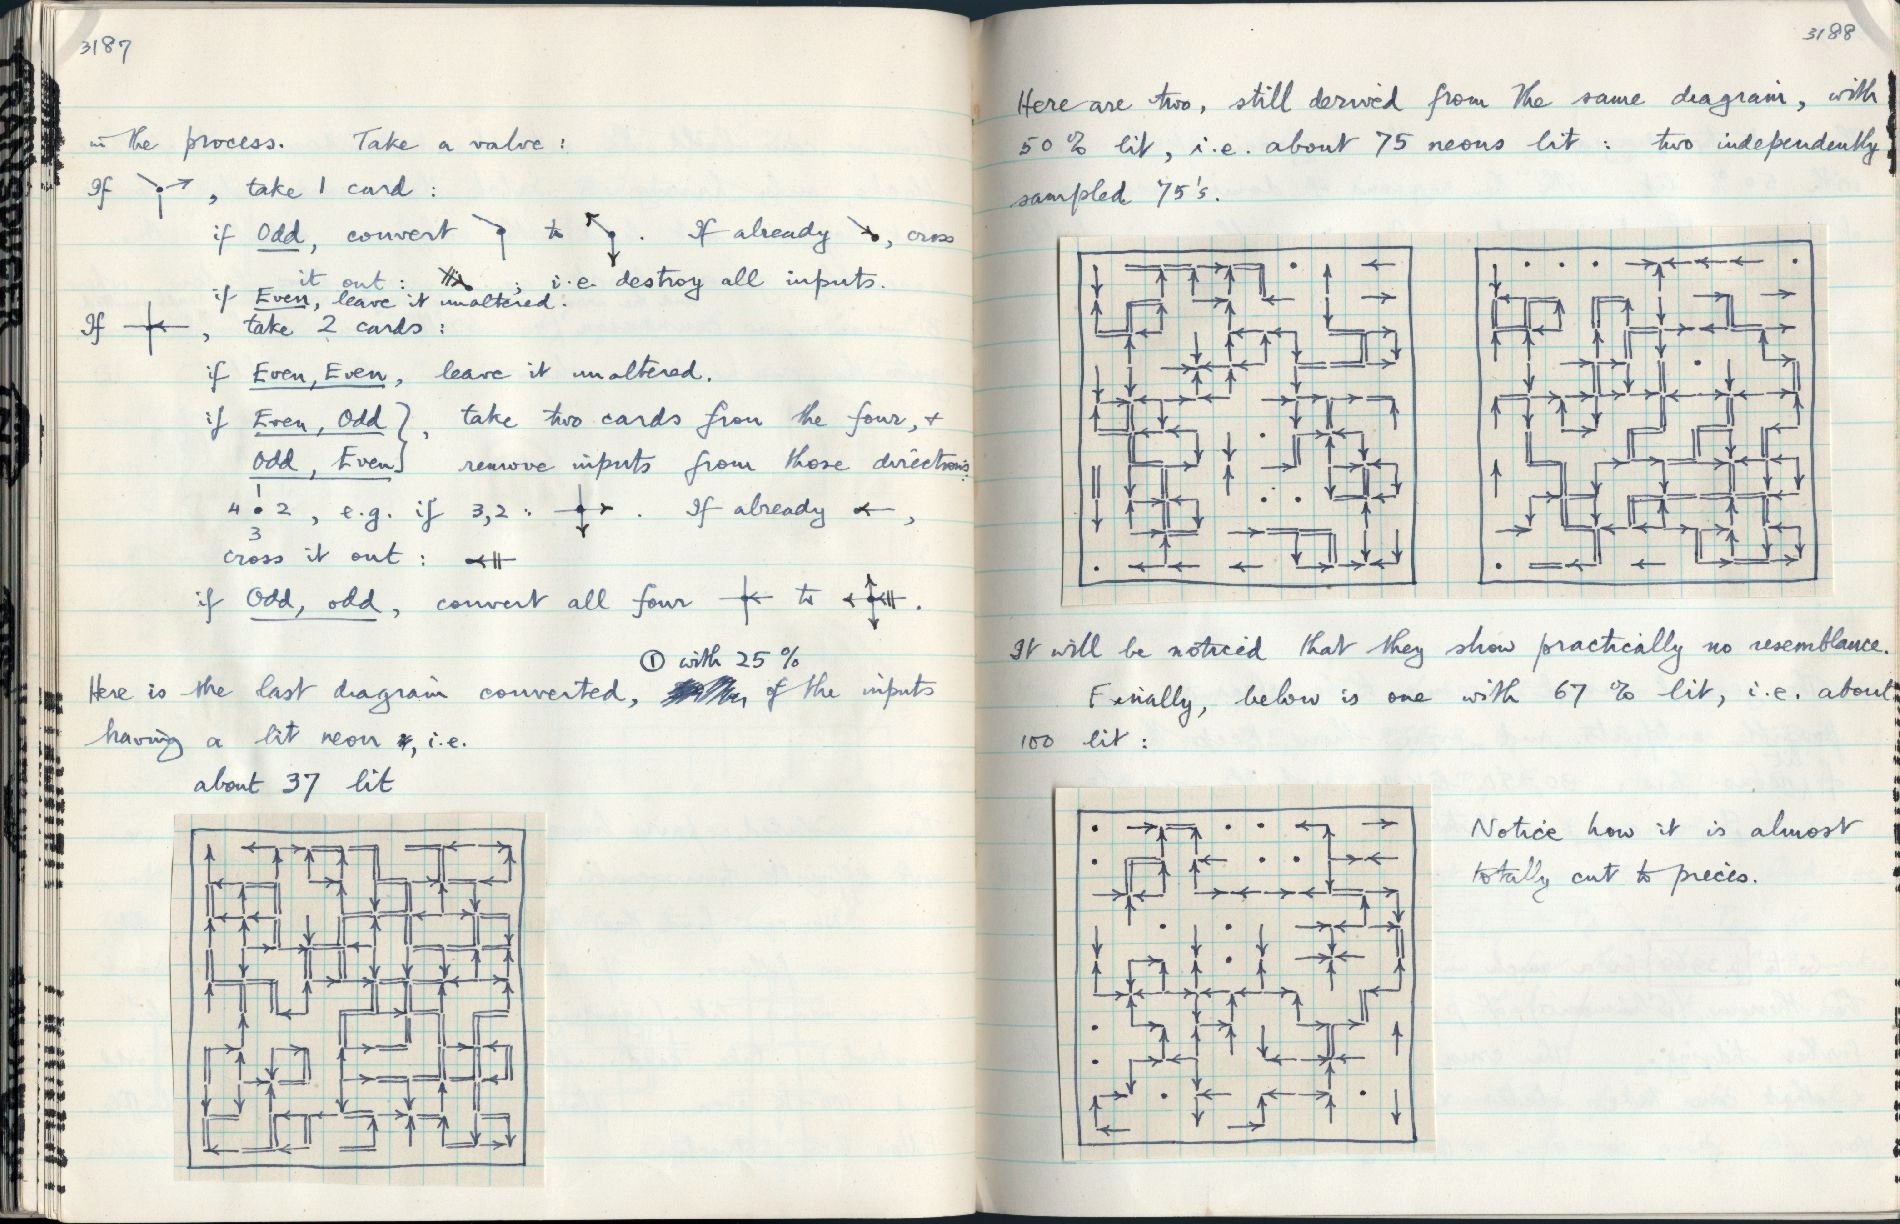 3187
in the process. Take a valve:
If , take 1 card:
if Odd, convert to . If already , cross
it out: ; i.e. destroy all inputs.
if Even, leave it unaltered.
If , take 2 cards:
if Even, Even, leave it unaltered.
if Even, Odd }, take two cards from the four, +
Odd, Even } remove inputs from those directions:
1
4 • 2, e.g. if 3,2: . If already ,
3
cross it out:
if Odd, odd, convert all four to .
① with 25%
Here is the last diagram converted, of the inputs
having a lit neon, i.e.
about 37 lit
3188
Here are two, still derived from the same diagram, with
50% lit, i.e. about 75 neons lit: two independently
sampled 75's.
It will be noticed that they show practically no resemblance.
Finally, below is one with 67% lit, i.e. about
100 lit:
Notice how it is almost
totally cut to pieces.